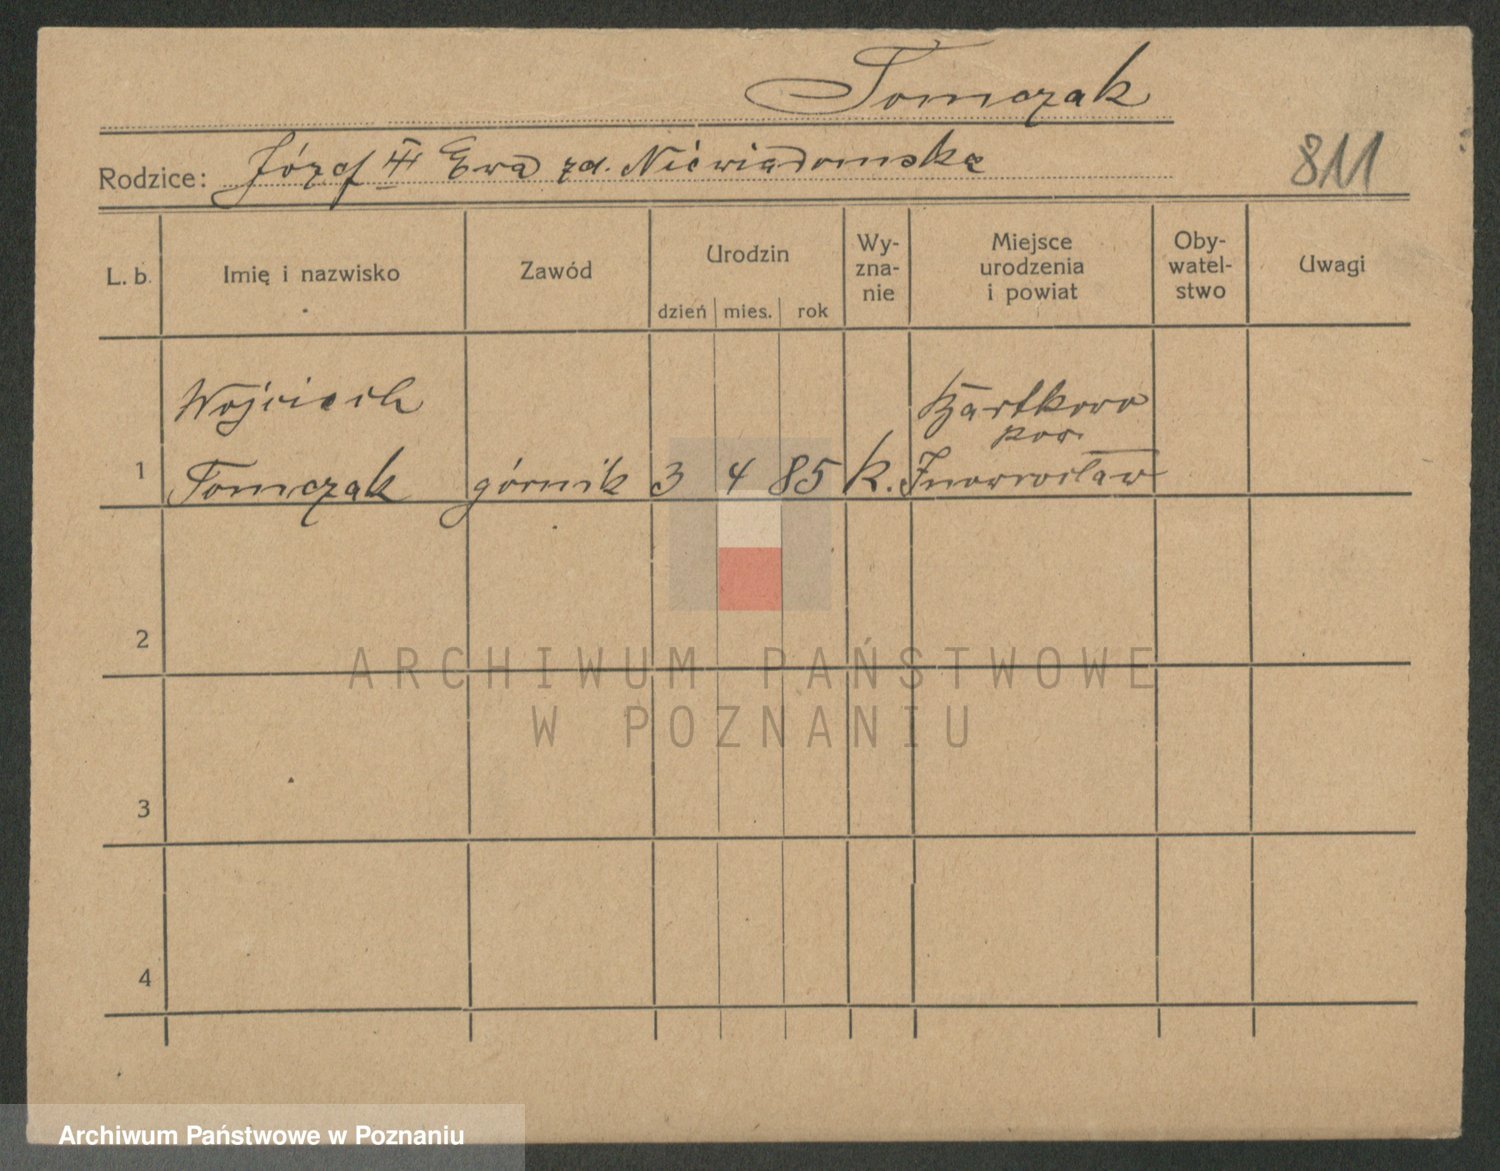 Tomczak
Rodzice: Józef Ewa zd. Niewiadomska
811
L. b.
Imię i nazwisko
Zawód
Urodzin
dzień mies. rok
Wy-
zna-
nie
Miejsce
urodzenia
i powiat
Oby-
watel-
stwo
Uwagi
1
Wojciech
Tomczak
górnik
3 4 85
k.
pow.
Inowrocław
2
3
4
ARCHIWUM PAŃSTWOWE
W POZNANIU
Archiwum Państwowe w Poznaniu